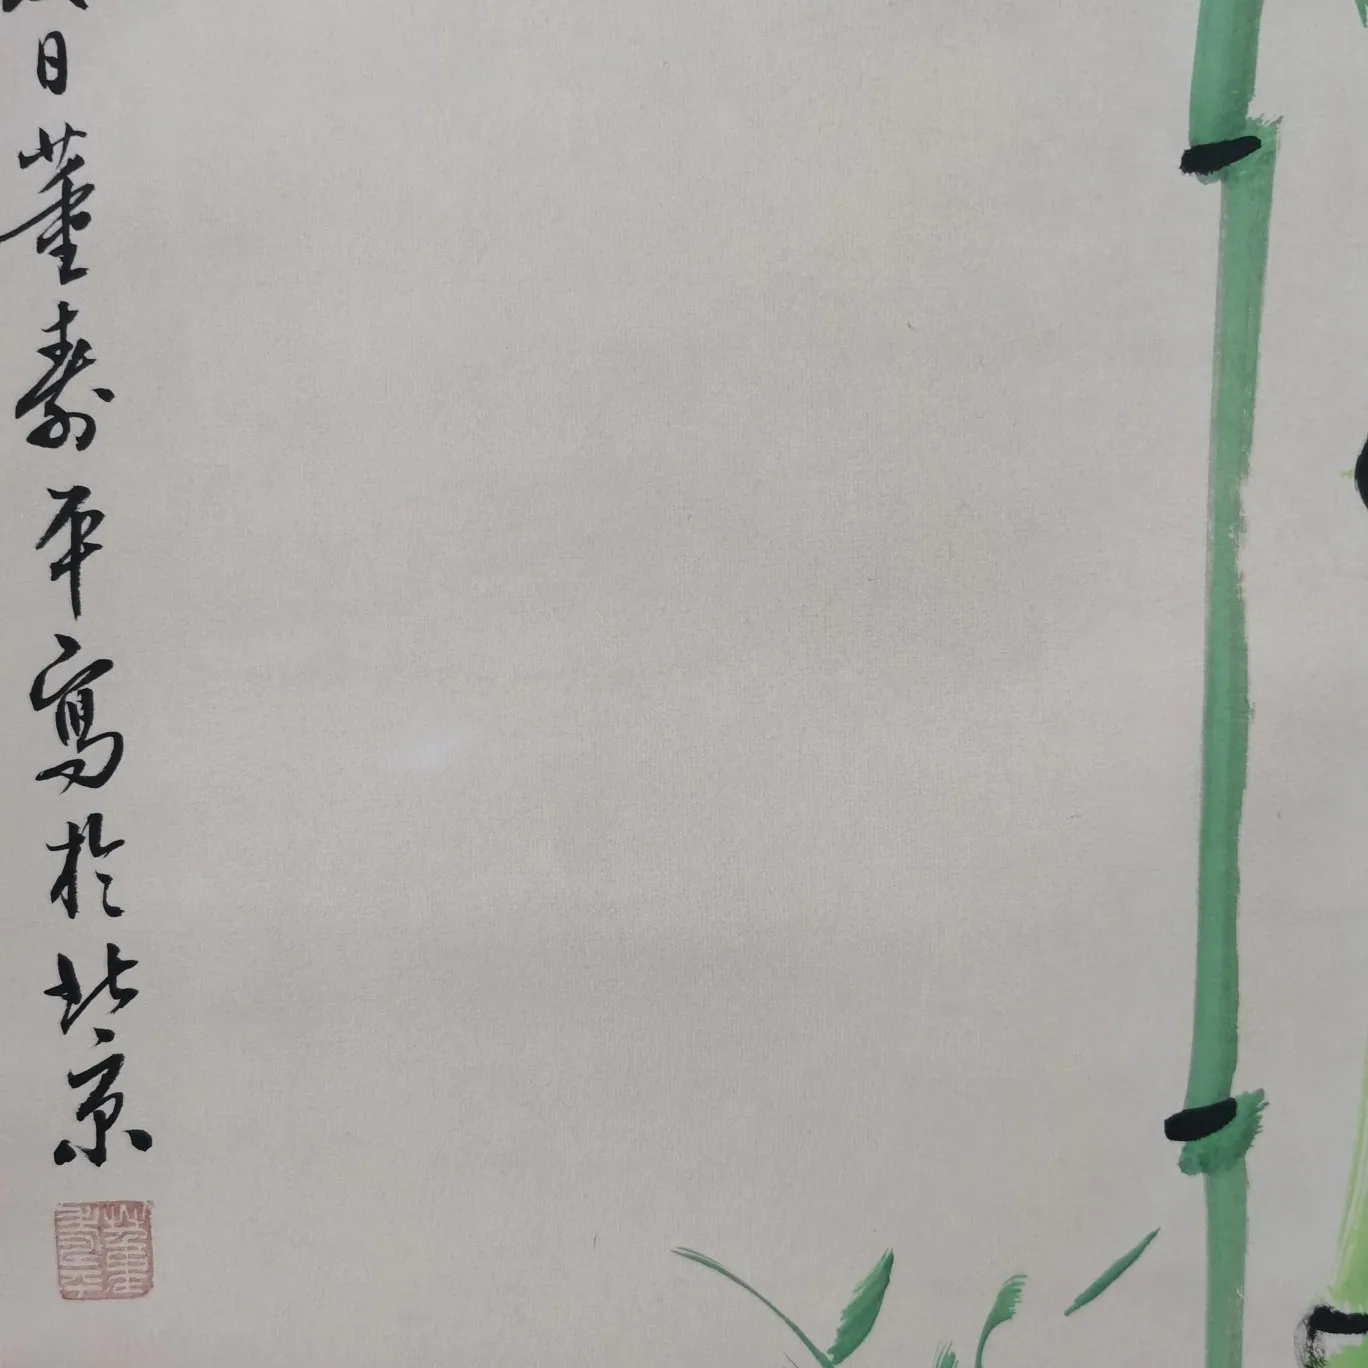 日董壽平寫於北京
董壽平